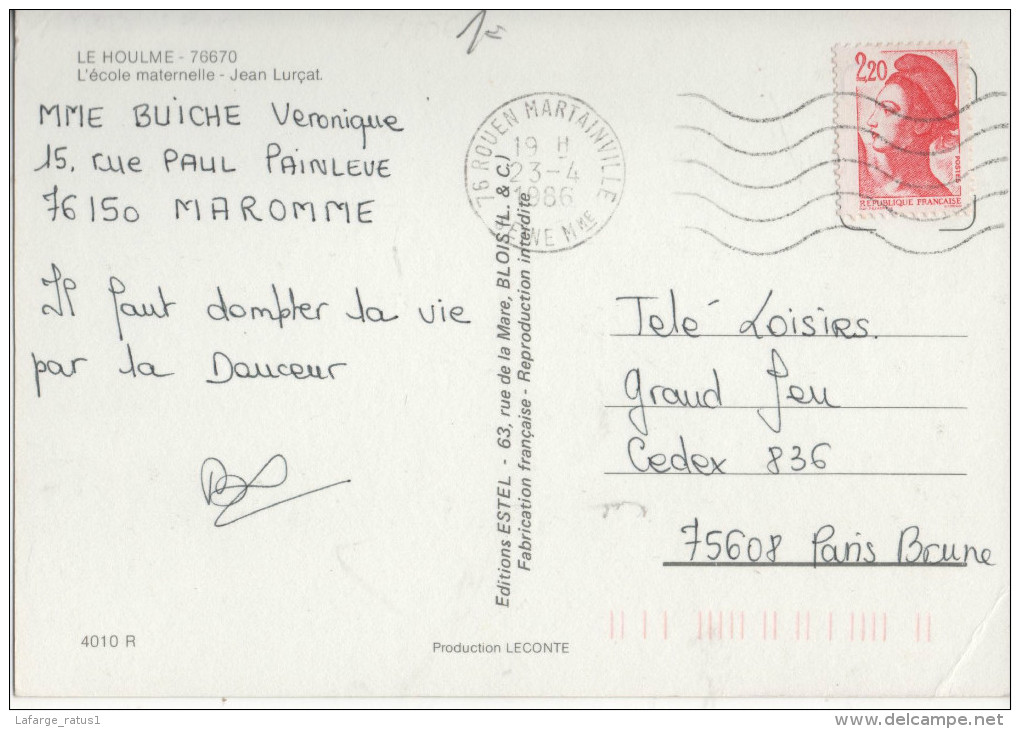 LE HOULME - 76670
L'école maternelle - Jean Lurçat.
MME BUICHE Veronique
15, rue PAUL PAINLEVE
76150 MAROMME
Il faut dompter la vie
par la Douceur
76 ROUEN MARTAINVILLE
19 H
23-4
1986
SEINE MME
2,20
POSTES
REPUBLIQUE FRANÇAISE
Editions ESTEL - 63, rue de la Mare, BLOIS (L. & C.)
Fabrication française - Reproduction interdite
Telé Loisirs.
grand Jeu
Cedex 836
75608 Paris Brune
4010 R
Production LECONTE
Lafarge_ratus1
www.delcampe.net